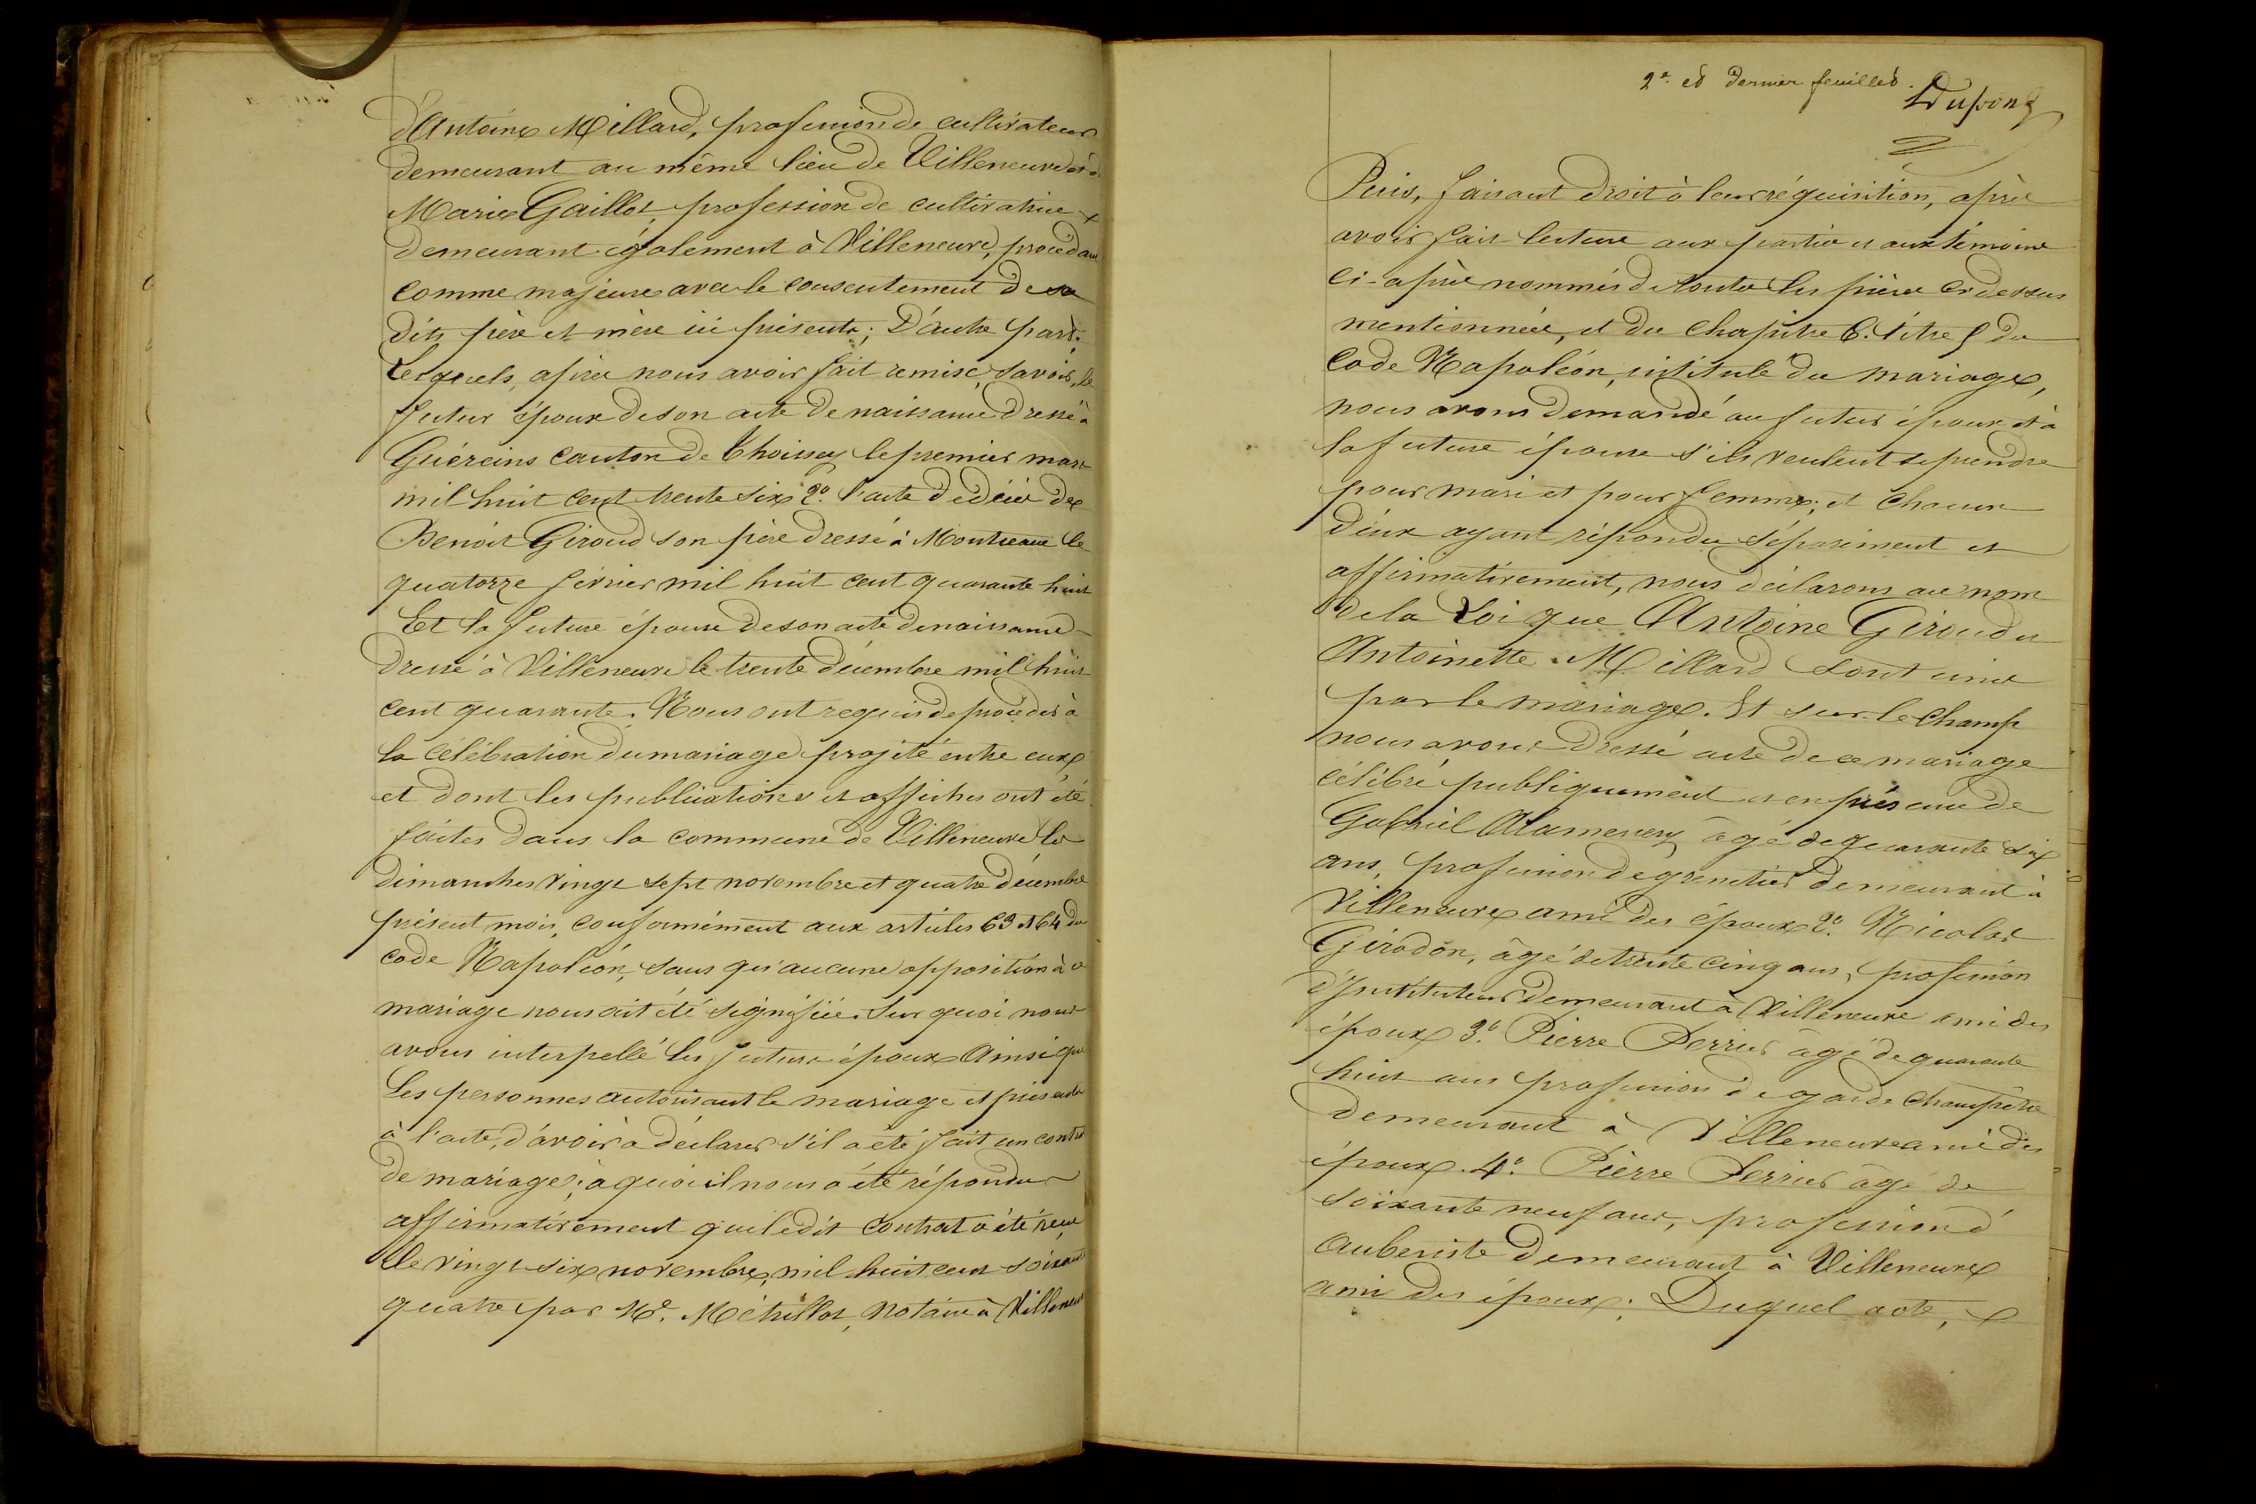 d'Antoine Millard, profession de cultivateur
demeurant au même lieu de Villeneuve et de
Marie Gaillot, profession de cultivatrice
demeurant également à Villeneuve, procédant
comme majeure avec le consentement de ses
dits père et mère ici présents; D'autre part.
Lesquels, après nous avoir fait remise, savoir, le
futur époux de son acte de naissance dressé à
Guéreins canton de Thoissey le premier mars
mil huit cent trente six 2º. l'acte de décès de
Benoit Giroud son père dressé à Montceaux le
quatorze février mil huit cent quarante huit
Et la future épouse de son acte de naissance
dressé à Villeneuve le trente décembre mil huit
cent quarante. Nous ont requis de procéder à
la célébration du mariage projeté entre eux
et dont les publications et affiches ont été
faites dans la commune de Villeneuve les
dimanches vingt sept novembre et quatre décembre
présent mois, conformément aux articles 63 et 64 du
code Napoléon, sans qu'aucune opposition à ce
mariage nous ait été signifiée. Sur quoi nous
avons interpellé les futurs époux Ainsi que
Les personnes autorisant le mariage et présentes
à l'acte, d'avoir à déclarer s'il a été fait un contrat
de mariage; à quoi il nous a été répondu
affirmativement que ledit contrat a été reçu
le vingt six novembre, mil huit cent soixante
quatre par Me. Métrillot, Notaire à Villeneuve
2e. et dernier feuillet.
Dupont
Puis, faisant droit à leur réquisition, après
avoir fait lecture aux parties et aux témoins
ci-après nommés de toutes les pièces ci dessus
mentionnées, et du chapitre 6. titre 5 du
code Napoléon, intitulé du mariage,
nous avons demandé au futur époux et à
la future épouse s'ils veulent se prendre
pour mari et pour femme; et chacun
d'eux ayant répondu séparément et
affirmativement, nous déclarons au nom
de la Loi que Antoine Giroud et
Antoinette Millard sont unis
par le mariage. Et sur-le champ
nous avons dressé acte de ce mariage
célébré publiquement et en présence de
Gabriel âgé de quarante six
ans, profession de grenetier demeurant à
Villeneuve ami des époux 2º. Nicolas
Girodon, âgé de trente cinq ans, profession
d'Instituteur demeurant à Villeneuve ami des
époux 3º. Pierre Perrier âgé de quarante
huit ans profession de garde champêtre
demeurant à Villeneuve ami des
époux. 4º. Pierre Perrier âgé de
soixante neuf ans, profession d'
auberiste demeurant à Villeneuve
ami des époux; Duquel acte,